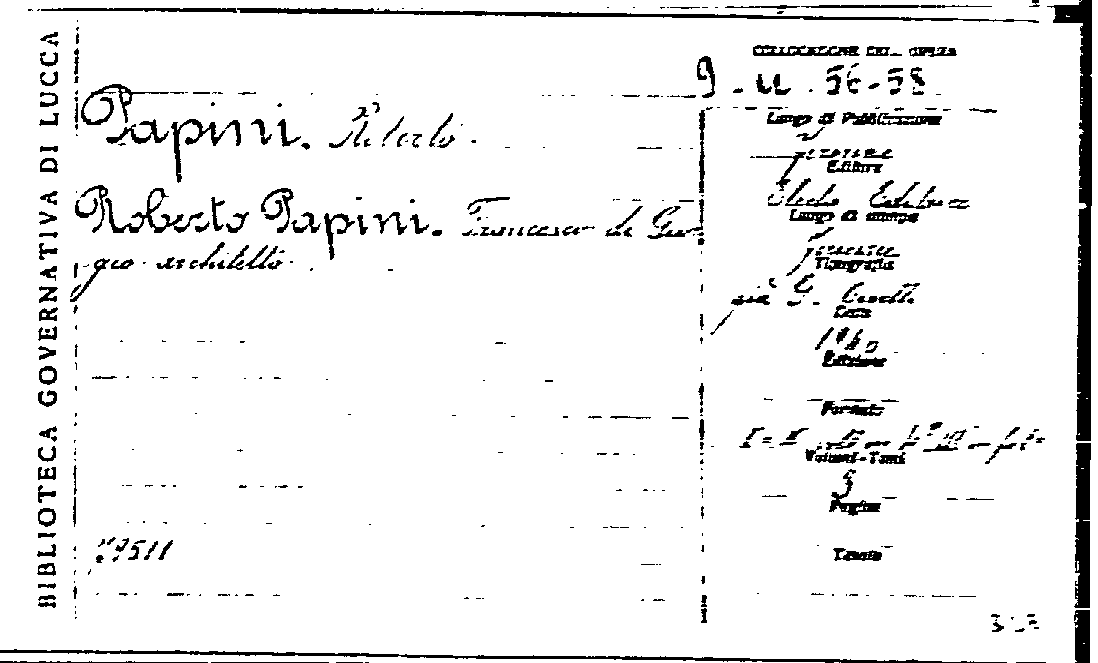 BIBLIOTECA GOVERNATIVA DI LUCCA
COLLOCAZIONE DELL'OPERA
9 - u . 56-58
Papini. Roberto
Roberto Papini. Francesco di Gior
gio architetto
Luogo di Pubblicazione
Firenze
Editore
Electa Editrice
Luogo di stampa
Firenze
Tipografia
già G. Civelli
Data
Edizione
Formato
Volumi-Tomi
3
Pagine
Tavole